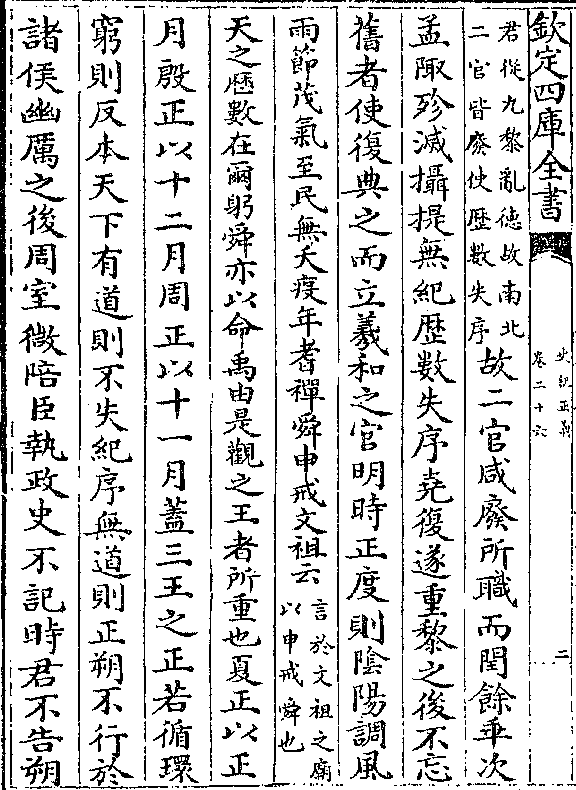 欽定四庫全書
史記正義
卷二十六
二
君從九黎亂德故南北
二官皆廢使歴數失序
故二官咸廢所職而閏餘乖次
孟陬殄滅攝提無紀歴數失序堯復遂重黎之後不忘
舊者使復典之而立羲和之官明時正度則陰陽調風
雨節茂氣至民無夭疫年耆禪舜申戒文祖云
言於文祖之廟
以申戒舜也
天之歴數在爾躬舜亦以命禹由是觀之王者所重也夏正以正
月殷正以十二月周正以十一月蓋三王之正若循環
窮則反本天下有道則不失紀序無道則正朔不行於
諸侯幽厲之後周室微陪臣執政史不記時君不告朔